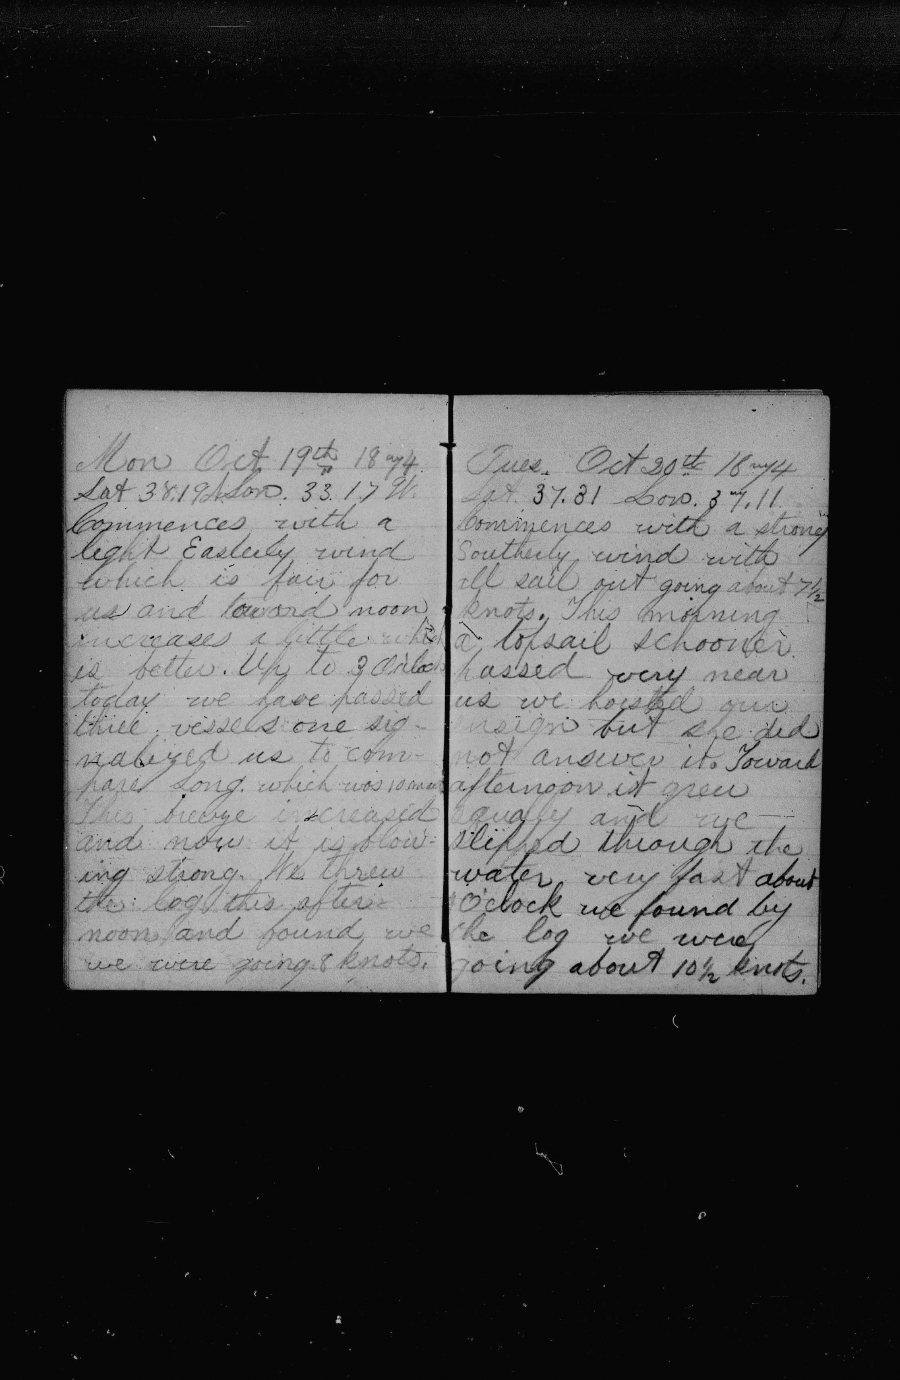 Mon Oct 19th 1874.
Lat 38.19 Lon. 33.17 W.
Commences with a
light Easterly wind
which is fair for
us and toward noon
increases a little which
is better. Up to 3 Oclock
today we have passed
three vessels one sig-
nalized us to com-
pare Long. which was
This breeze increased
and now it is blow-
ing strong. We threw
the log this after-
noon and found we
we were going 8 knots.
Tues. Oct 20th 1874
Lat. 37.31 Lon. 37.11
Commences with a strong
Southerly wind with
all sail out going about 7½
knots. This morning
a topsail schooner
passed very near
us we hoisted our
ensign but she did
not answer it. Toward
afternoon it grew
squally and we
slipped through the
water very fast about
O'clock we found by
the log we were
going about 10½ knots.